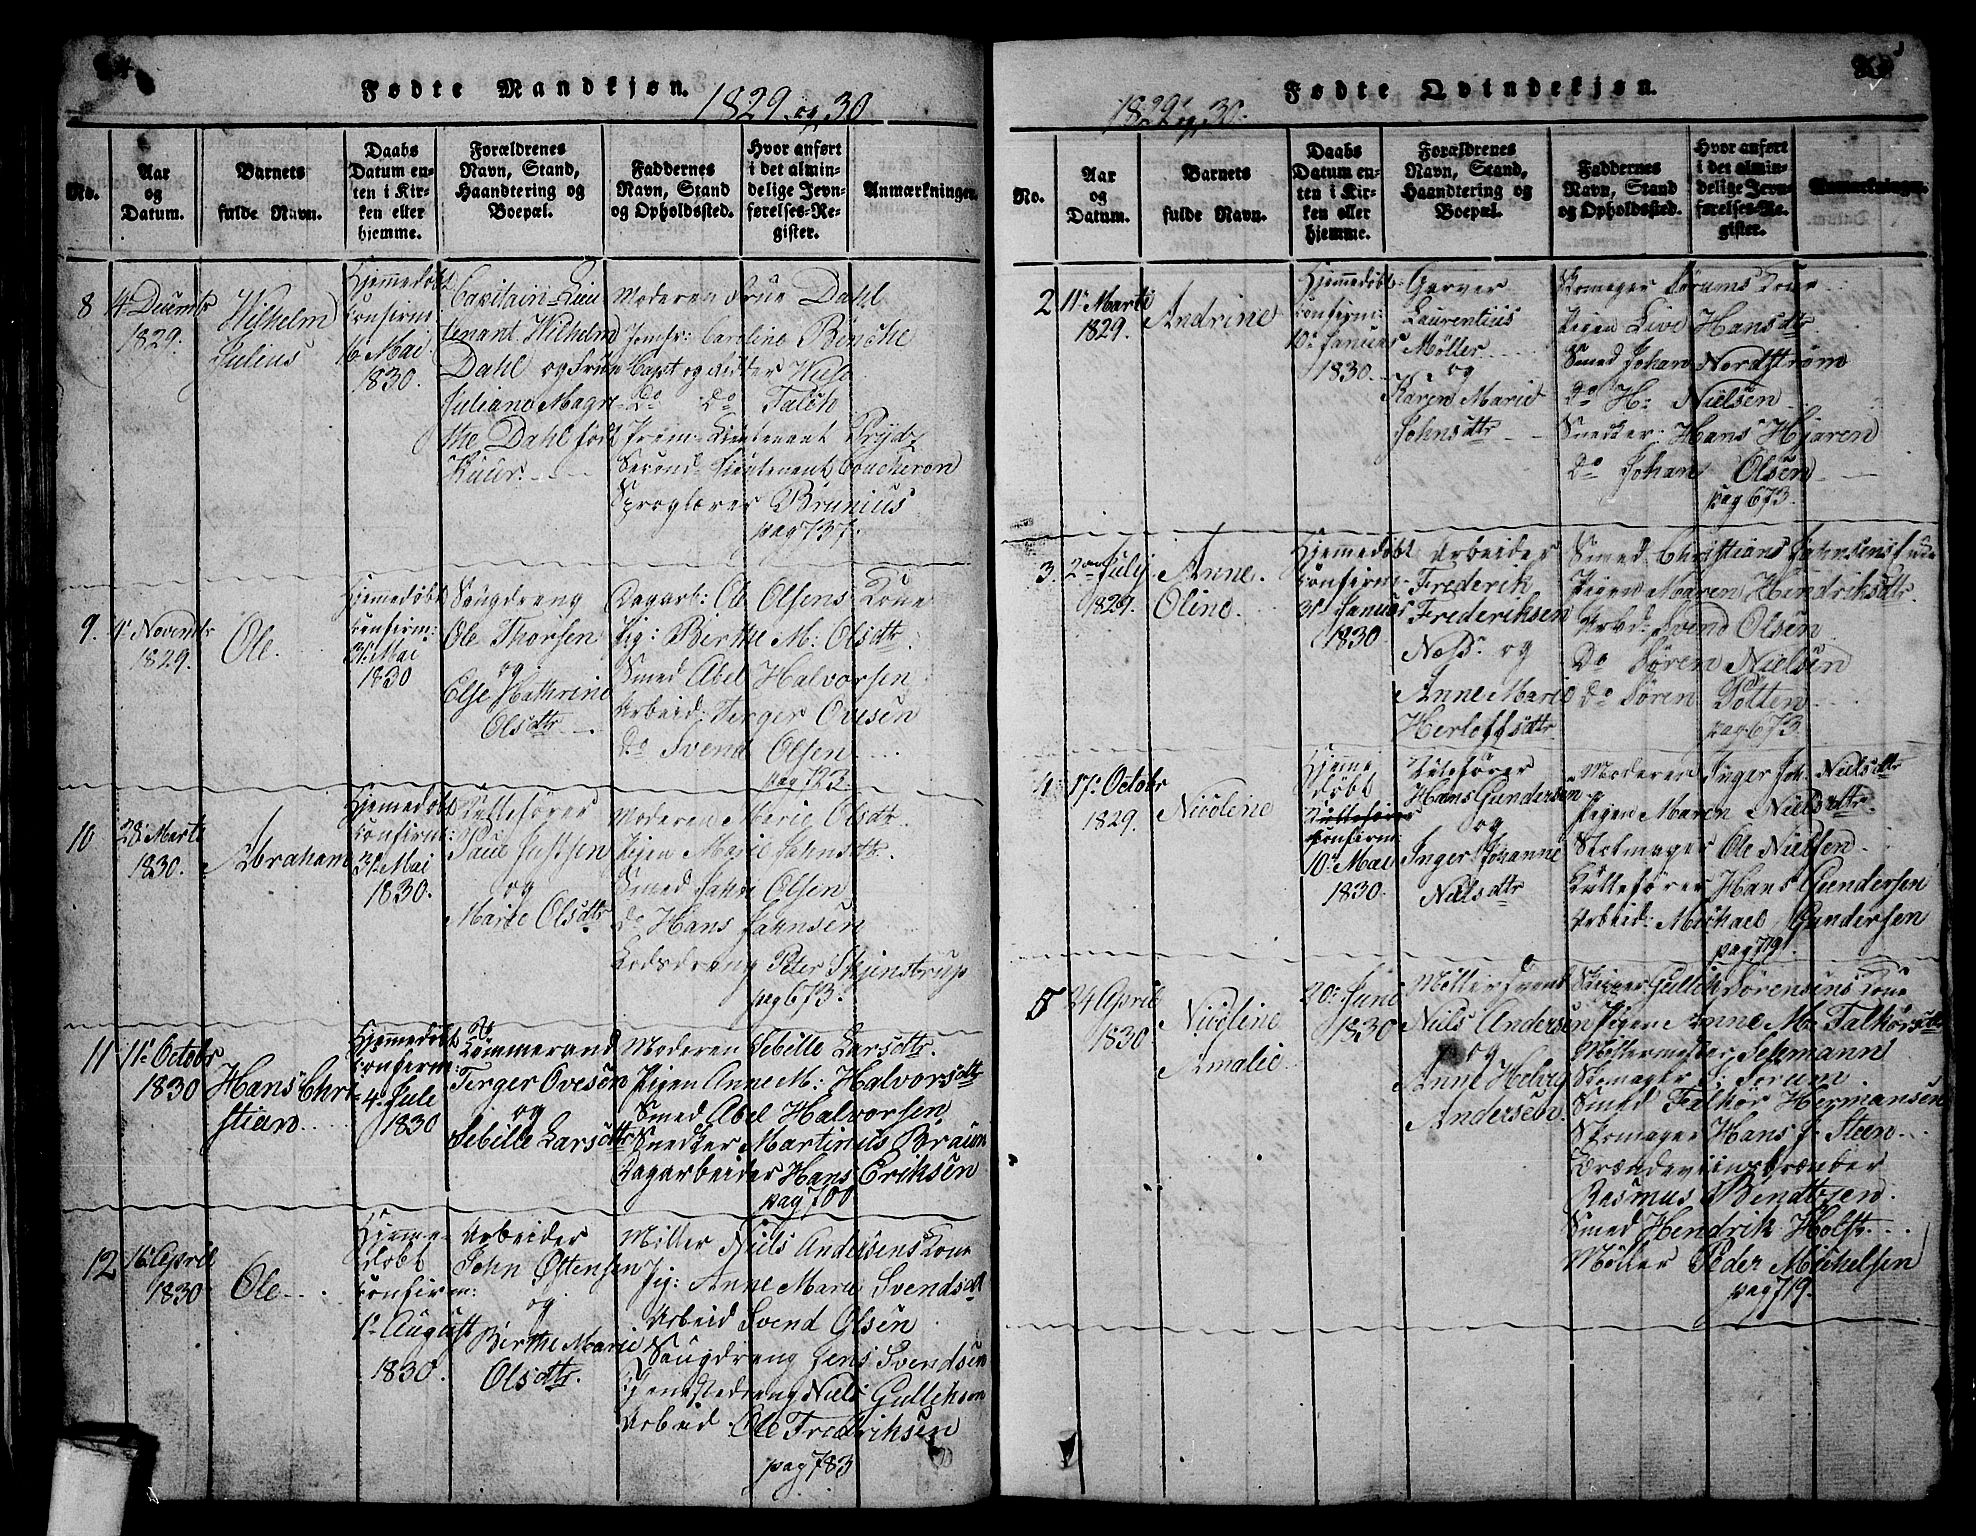 Fødte Mandkjøn.
1829 og 30
No.
Aar
og
Datum.
Barnets
fulde Navn.
Daabs
Datum en-
ten i Kir-
ken eller
hjemme.
Forældrenes
Navn, Stand,
Haandtering og
Boepæl.
Faddernes
Navn, Stand
og Opholdssted.
Hvor anført
i det almin-
delige Jevn-
førelses-Re-
gister.
Anmærkninger.
8
4 Decembr
1829.
Wilhelm
Julius
Hjemmedøbt
Confirm:
16 Mai
1830.
Capitain-Lieu
tenant Wilhelm
Dahl og Frue
Juliane Magre-
the Dahl født
Moderen Frue Dahl
Jomfr: Caroline Bensche
Capt og Ridder Huse
Do Do Falch
Prem: Lieutenant Prydz
Second: Lieutenant Coucheron
Sproglærer Brunius
pag 737.
9.
4 Novembr
1829.
Ole.
Hjemedøbt
Confirm:
31 Mai
1830
Saugdreng
Ole Thorsen
og
Else Kathrine
Olsdtr
Dagarb: Ole Olsens Kone
Pig: Birthe M: Olsdtr:
Smed Abel Halvorsen
Arbeid: Terger Ovesen
Do Svend Olsen
pag 723.
10
28 Marti
1830.
Abraham
Hjemedøbt
Confirm:
31 Mai
1830.
Kullefører
Paul Justsen
og
Marie Olsdtr
Moderen Marie Olsdtr.
Pigen Marie Jahnsdtr.
Smed Jahn Olsen
Do Hans Jahnsen
Lodsdreng Peter Skjenstrup
pag 673.
11
11 Octobr
1830
Hans Chri-
stian
Hjemmedøbt
Confirm:
4 Jule
1830
Tømmermand
Terger Ovesen
og
Sebille Larsdtr
Moderen Sebille Larsdtr.
Pigen Anne M: Halvorsdtr
Smed Abel Halvorsen
Snedker Martinus Braun
Dagarbeider Hans Eriksen
pag 700
12
16 April
1830
Ole
Hjeme
døbt
Confirm:
1 August
1830.
Arbeider
John Østensen
og
Birthe Marie
Olsdtr.
Møller Niels Andersens Kone
Pig: Anne Marie Svendsdt
Arbeid Svend Olsen
Saugdreng Jens Svendsen
Niels Gullichsen
Arbeid Ole Fredriksen
pag 783
Fødte Qvindekjøn.
1829 og 30.
No.
Aar
og
Datum.
Barnets
fulde Navn.
Daabs
Datum en-
ten i Kir-
ken eller
hjemme.
Forældrenes
Navn, Stand,
Haandtering og
Boepæl.
Faddernes
Navn, Stand
og Opholdssted.
Hvor anført
i det almin-
delige Jevn-
førelses-Re-
gister.
Anmærkninger.
2
11 Marti
1829.
Andrine
Hjemmedøbt
Confirm:
10 Januar
1830.
Garver
Laurentius
Møller
og
Karen Marie
Johnsdtr
Skomager Sørums Kone
Pigen Live Hansdtr
Smed Johan Nordstrøm
Do H: Nielsen
Snedker Hans Hjaren
Do Johan Olsen
pag 673.
3.
2den Julij
1829.
Anne
Oline
Hjemmedøbt
Confirm:
31 Januar
1830
Arbeider
Frederik
Frederiksen
Næss. og
Anne Marie
Herloffsdtr
Smed Christians Jahnsens
Pigen Maren Hendriksdtr.
Arbd: Svend Olsen
Do Søren Nielsen
do Søren Potten
pag 673.
4
17 Octobr
1829.
Nicoline
Hjeme
døbt
Kullefører
Confirm:
10 Mai
1830.
Kulefører
Hans Gundersen
og
Inger Johanne
Nielsdtr
Moderen Inger Joh. Nielsdtr
Pigen Maren Nielsdtr.
Stolmager Ole Nielsen
Kullefører Hans Gundersen
Arbeid: Michael Gundersen
pag 719.
5
24 April
1830
Nicoline
Amalie
20 Juni
1830
Møllersvend
Niels Andersen
og
Anne Helvig
Andersen.
Skipper Gullich Sørensens Kone
Pigen Anne M: Falkorsdtr
Møllermester Sehmann
Skomager S: Sørum
Smed Falkor Hermansen
Skomager Hans J. Steen
Brændeviinsbrænder
Rasmus Bendtzen.
Smed Hendrik Holst
Møller Peder Michelsen
pag 719.